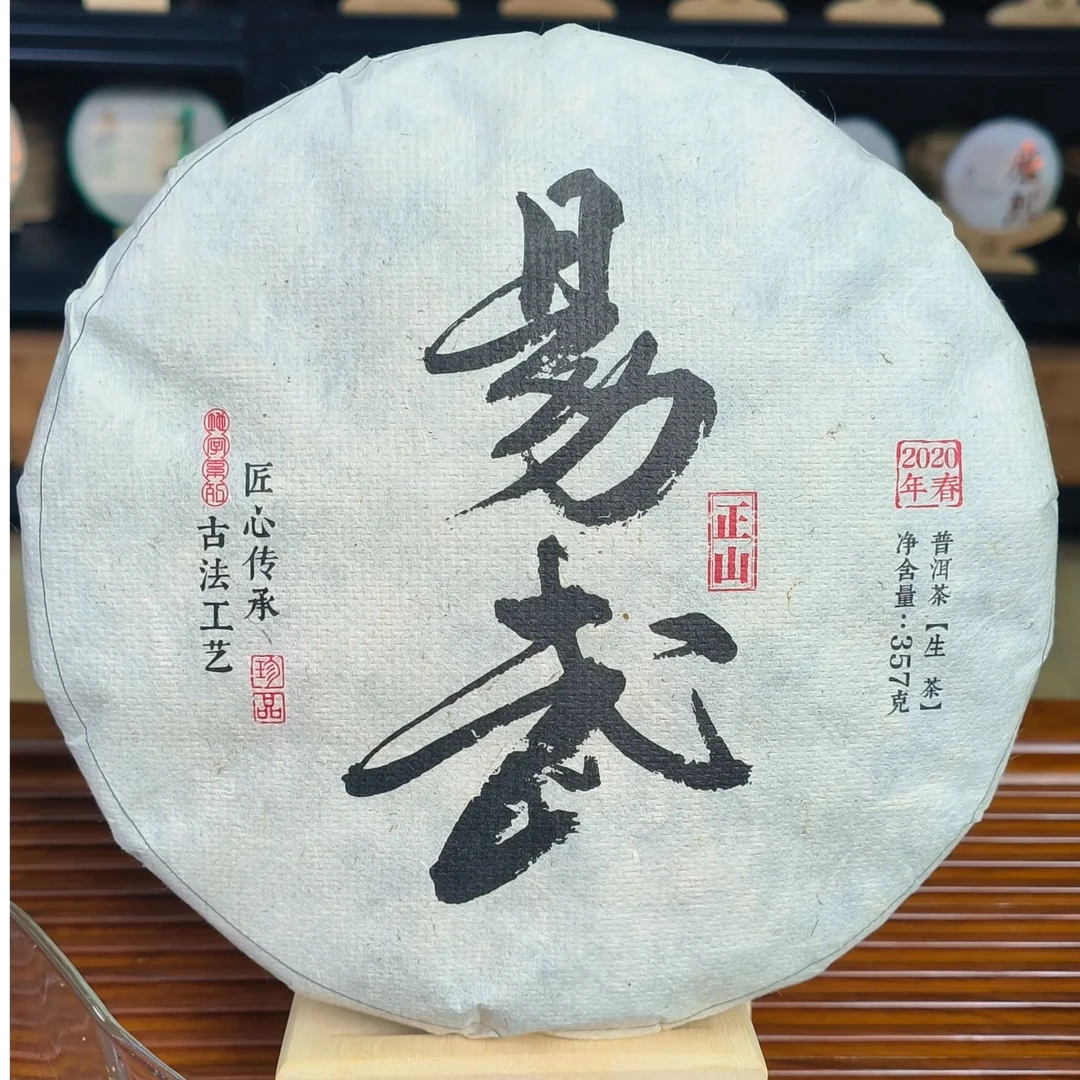 易武
正山
2020
年春
普洱茶【生 茶】
净含量:357克
匠心传承
珍品
古法工艺